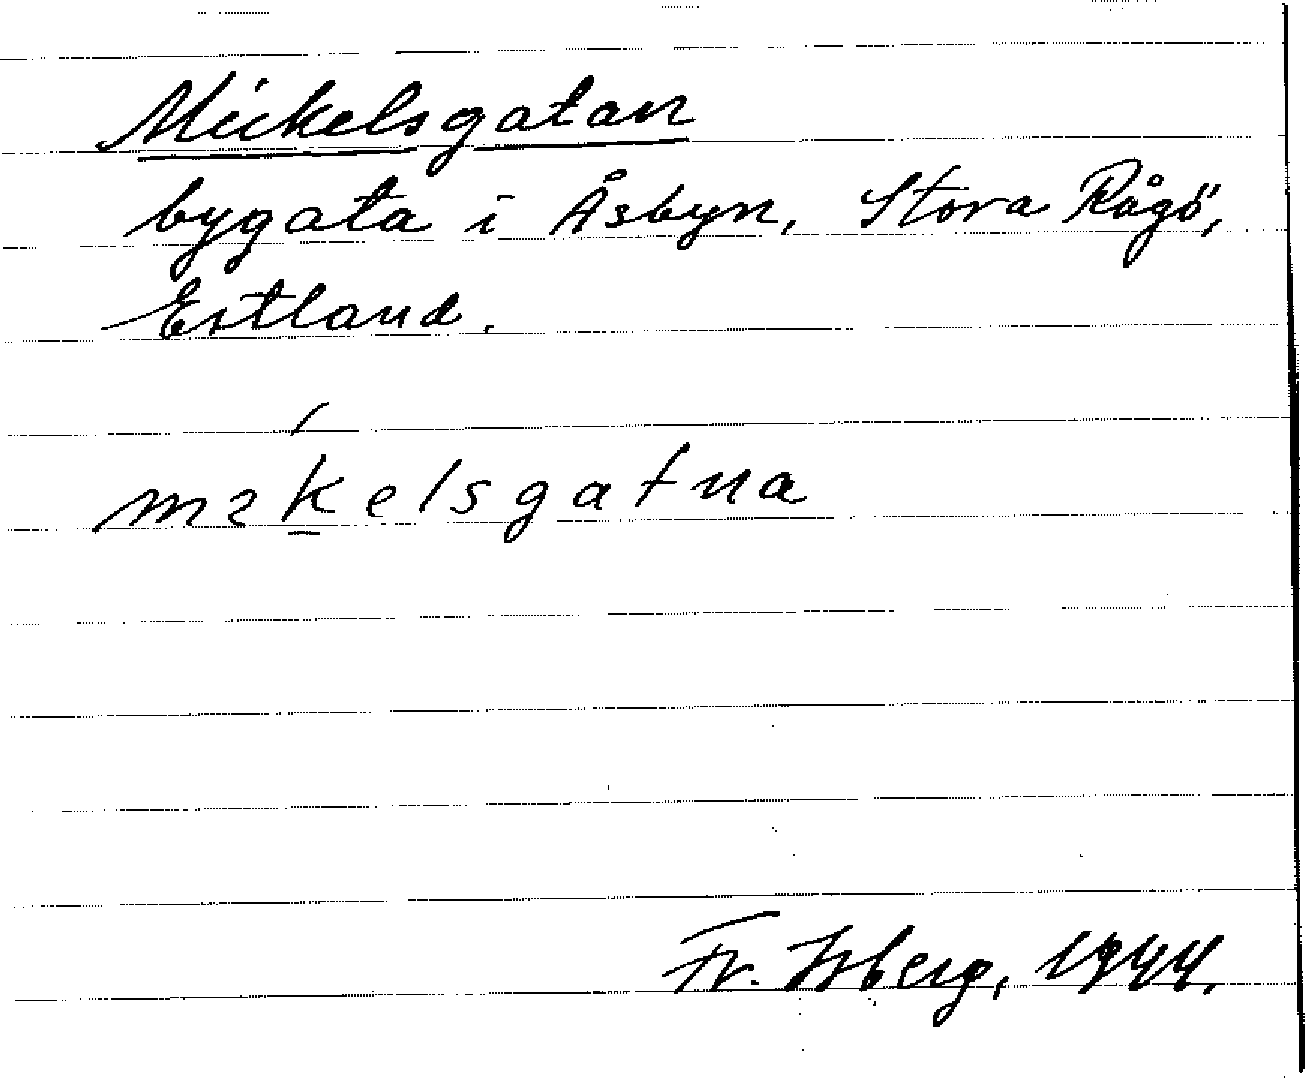 Mickelsgatan
bygata i Åsbyn, Stora Rågö,
Estland.
Fr. Isberg, 1944.